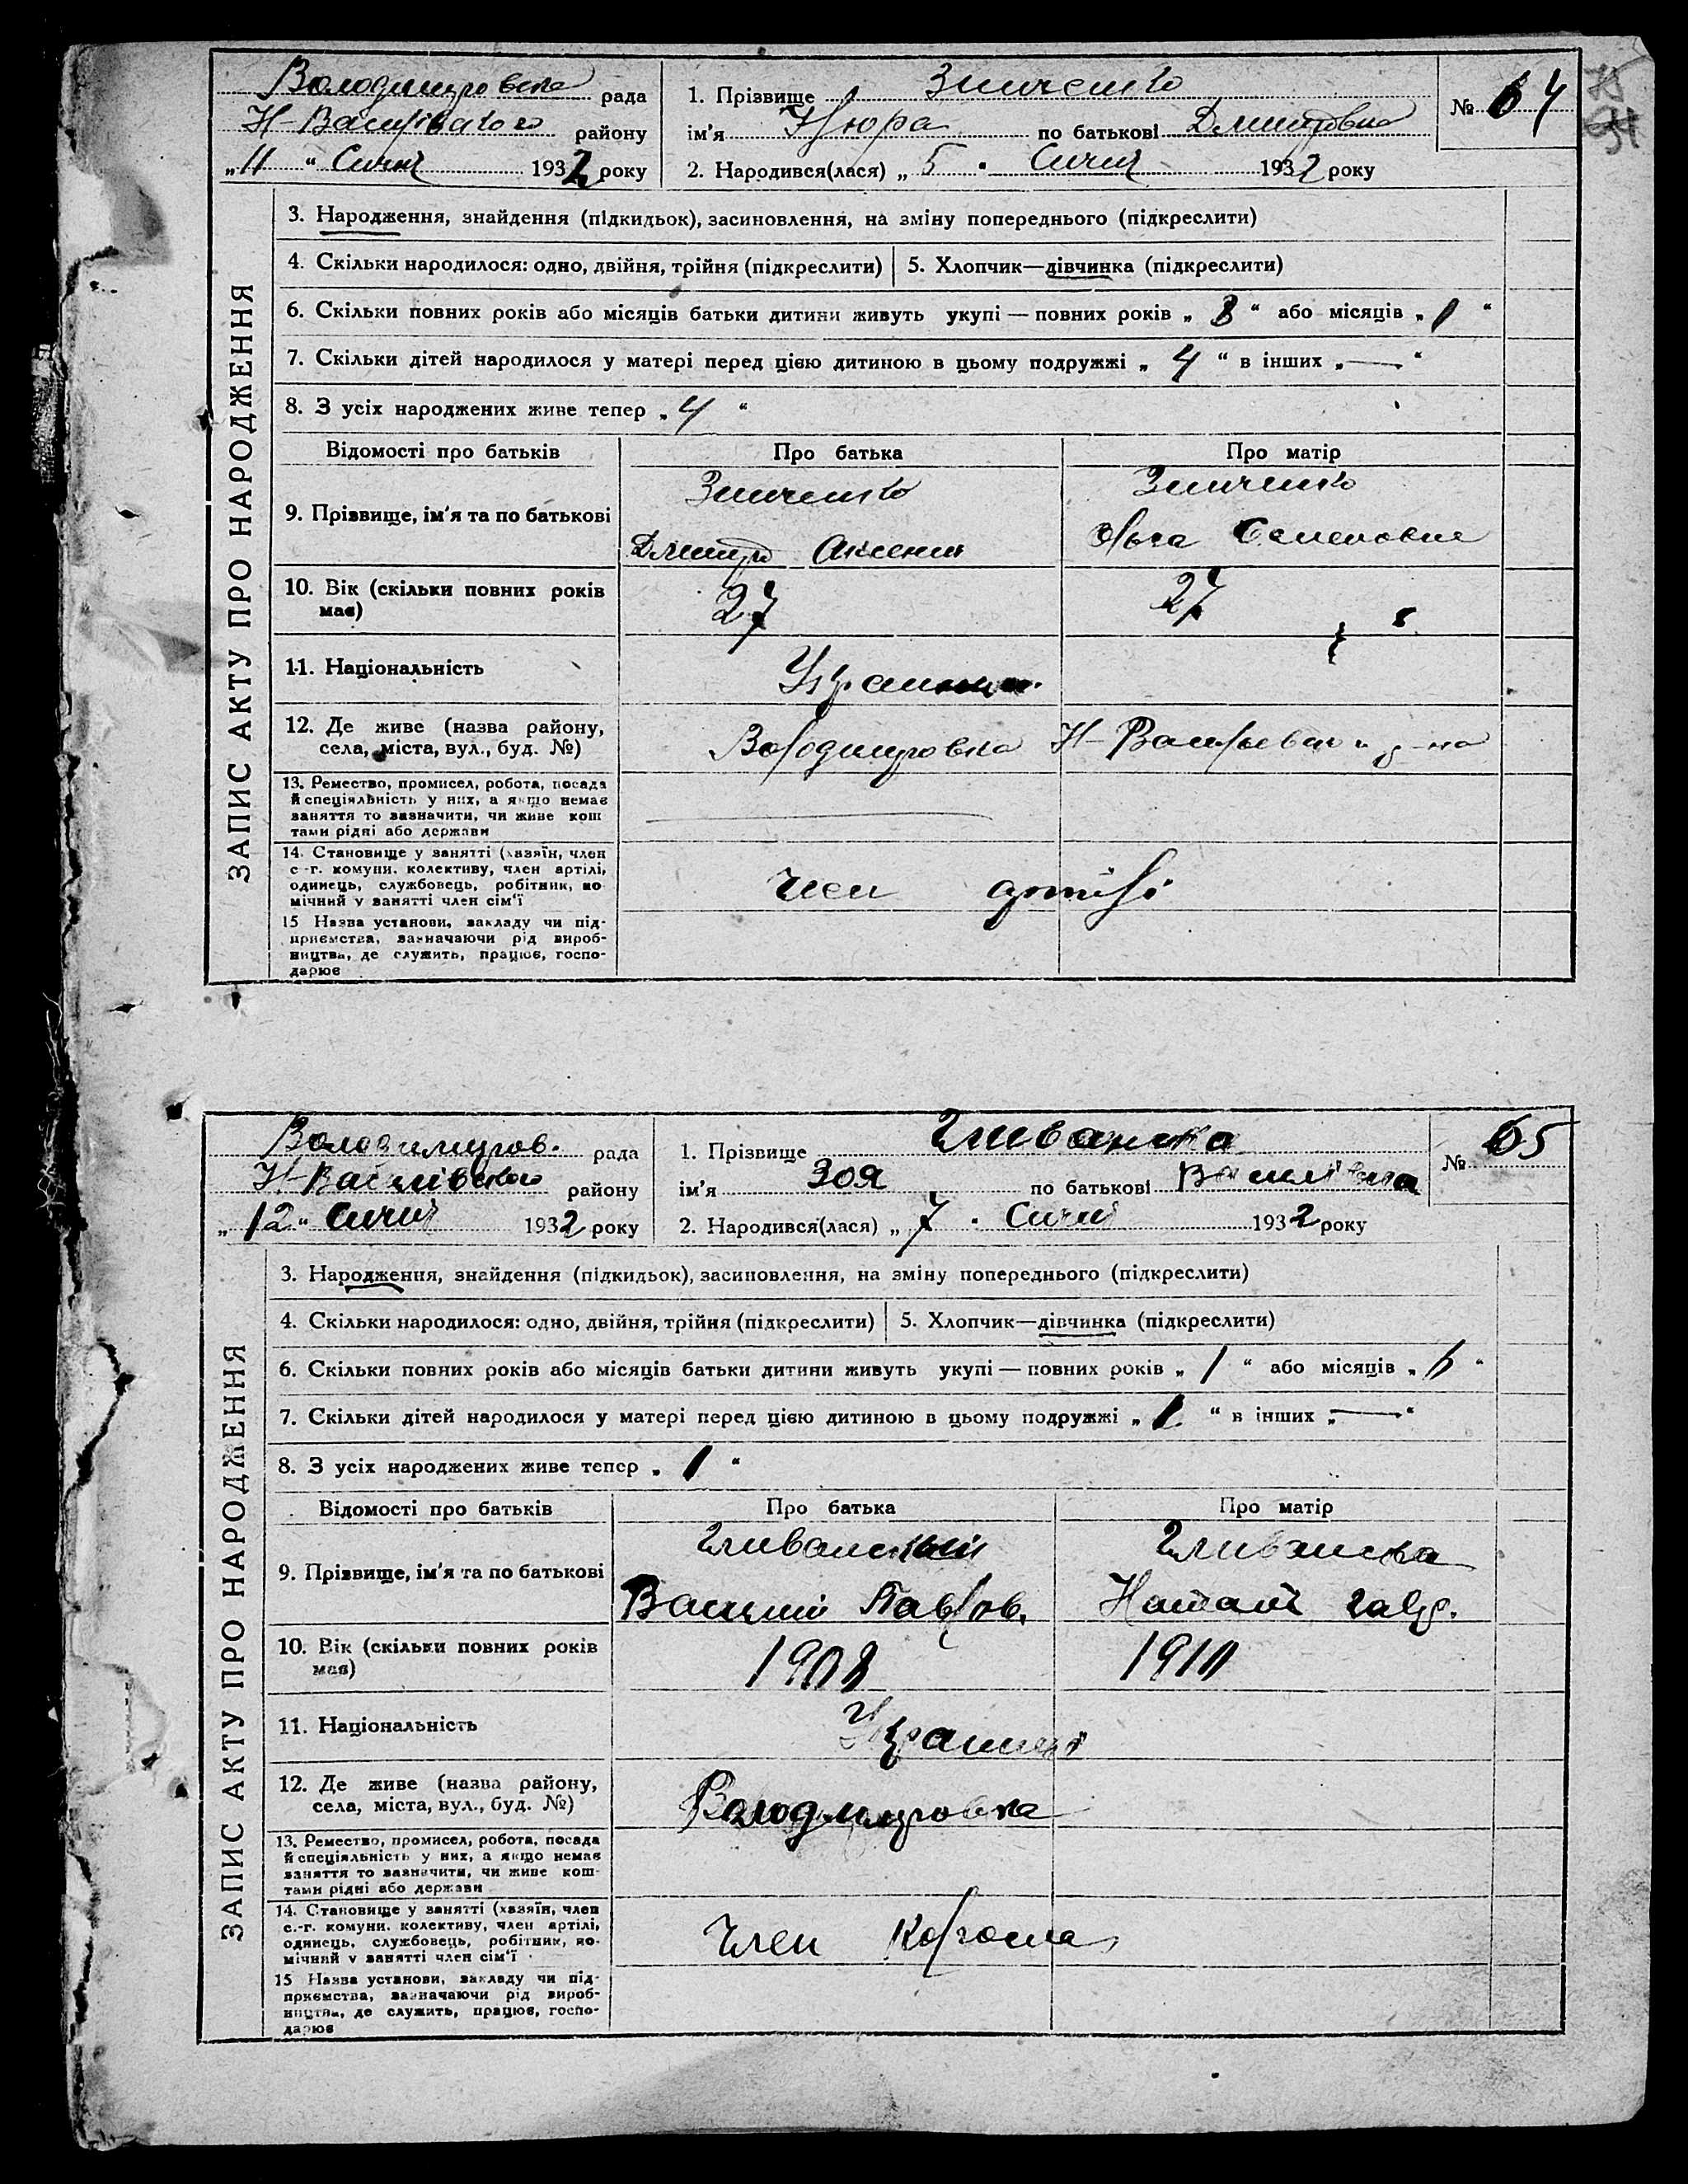 Володимировска рада
Н-Василівского району
„11“ Січня 1932 року
1. Прізвище Зинченко
ім'я Нюра по батькові Дмитровна
2. Народився(лася) „5“ Січня 1932 року
№ 64
ЗАПИС АКТУ ПРО НАРОДЖЕННЯ
3. Народження, знайдення (підкидьок), засиновлення, на зміну попереднього (підкреслити)
4. Скільки народилося: одно, двійня, трійня (підкреслити) 5. Хлопчик—дівчинка (підкреслити)
6. Скільки повних років або місяців батьки дитини живуть укупі — повних років „8“ або місяців „1“
7. Скільки дітей народилося у матері перед цією дитиною в цьому подружжі „4“ в інших „—“
8. З усіх народжених живе тепер „4“
Відомості про батьків Про батька Про матір
9. Прізвище, ім'я та по батькові
Зинченко Зинченко
Дмитро Аксенти Ольга Семеновна
10. Вік (скільки повних років має) 27 27
11. Національність
12. Де живе (назва району, села, міста, вул., буд. №)
Володимировка Н-Васильевског р-на
13. Ремество, промисел, робота, посада
й спеціяльність у них, а якщо немає
заняття то зазначити, чи живе кош
тами рідні або держави
14. Становище у занятті (хазяїн, член
с.-г. комуни, колективу, член артілі,
одинець, службовець, робітник, по
мічний у занятті член сім'ї
член артілі
15 Назва установи, закладу чи під-
приємства, зазначаючи рід вироб-
ництва, де служить, працює, госпо-
дарює
Володимиров. рада
Н-Василівского району
„12“ Січня 1932 року
1. Прізвище Гливанска
ім'я Зоя по батькові Василівна
2. Народився(лася) „7“ Січня 1932 року
№ 65
ЗАПИС АКТУ ПРО НАРОДЖЕННЯ
3. Народження, знайдення (підкидьок), засиновлення, на зміну попереднього (підкреслити)
4. Скільки народилося: одно, двійня, трійня (підкреслити) 5. Хлопчик—дівчинка (підкреслити)
6. Скільки повних років або місяців батьки дитини живуть укупі — повних років „1“ або місяців „6“
7. Скільки дітей народилося у матері перед цією дитиною в цьому подружжі „1“ в інших „—“
8. З усіх народжених живе тепер „1“
Відомості про батьків Про батька Про матір
9. Прізвище, ім'я та по батькові
Гливанський Гливанска
Василий Павлов. Наталя
10. Вік (скільки повних років має) 1908 1910
11. Національність Українці
12. Де живе (назва району, села, міста, вул., буд. №)
Володимировка
13. Ремество, промисел, робота, посада
й спеціяльність у них, а якщо немає
заняття то зазначити, чи живе кош-
тами рідні або держави
14. Становище у занятті (хазяїн, член
с.-г. комуни, колективу, член артілі,
одинець, службовець, робітник, по-
мічний у занятті член сім'ї
Член Колгоспа
15 Назва установи, закладу чи під-
приємства, зазначаючи рід вироб-
ництва, де служить, працює, госпо-
дарює